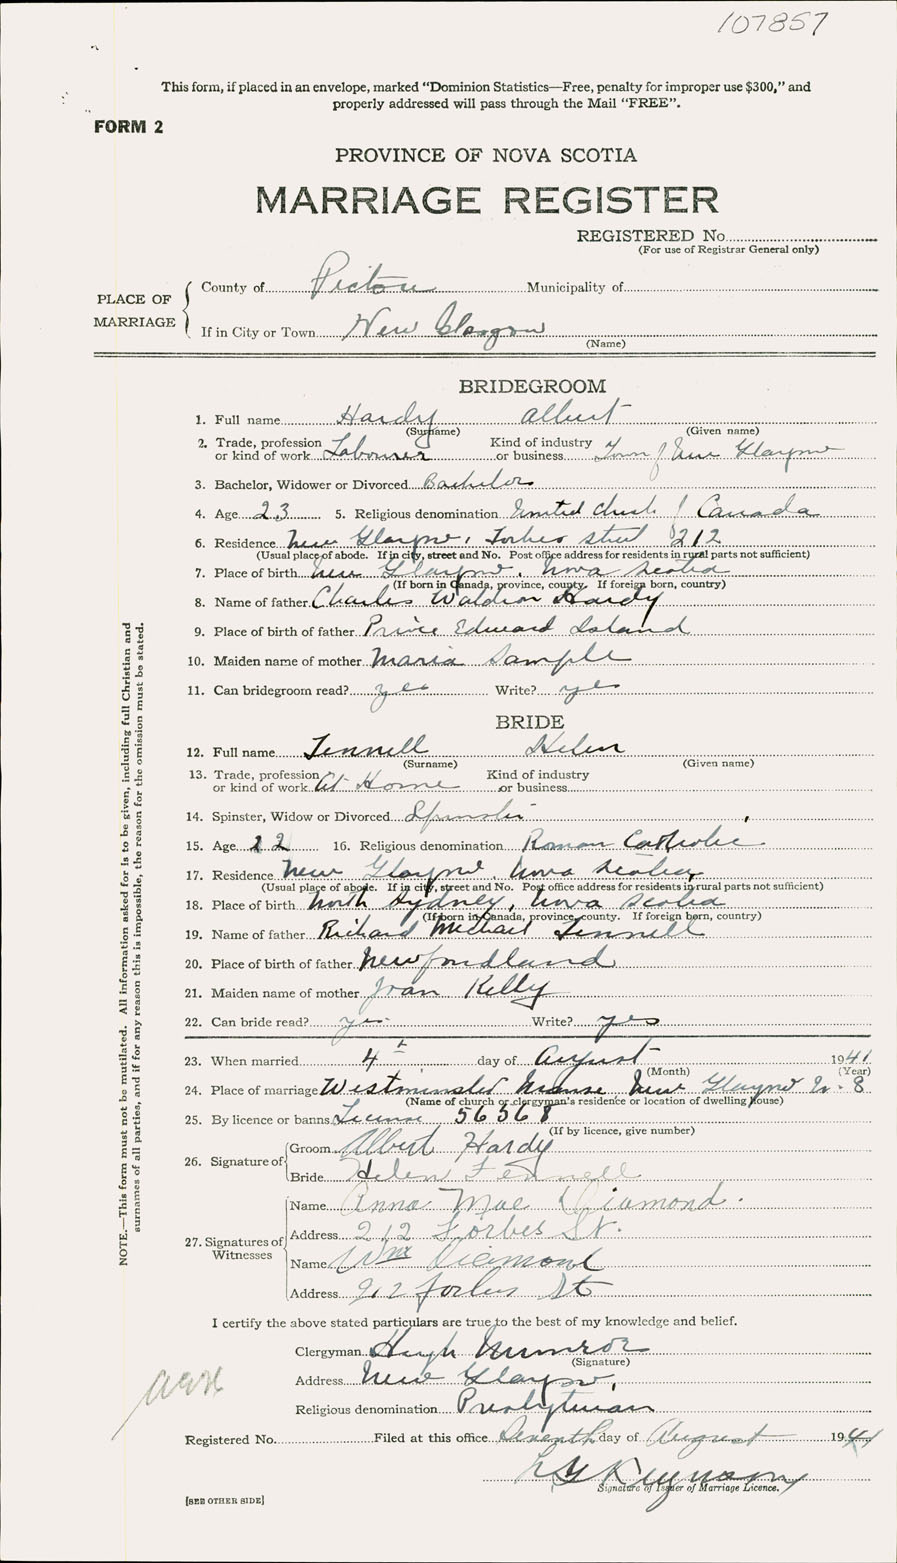 107857
This form, if placed in an envelope, marked "Dominion Statistics—Free, penalty for improper use $300," and
properly addressed will pass through the Mail "FREE".
FORM 2
PROVINCE OF NOVA SCOTIA
MARRIAGE REGISTER
REGISTERED No.
(For use of Registrar General only)
PLACE OF MARRIAGE
County of Pictou Municipality of
If in City or Town New Glasgow
(Name)
BRIDEGROOM
1. Full name Hardy Albert
(Surname) (Given name)
2. Trade, profession or kind of work Labourer Kind of industry or business Town of New Glasgow
3. Bachelor, Widower or Divorced Bachelor
4. Age 23 5. Religious denomination United church of Canada
6. Residence New Glasgow, Forbes street 212
(Usual place of abode. If in city, street and No. Post office address for residents in rural parts not sufficient)
7. Place of birth New Glasgow, Nova Scotia
(If born in Canada, province, county. If foreign born, country)
8. Name of father Charles Waldron Hardy
9. Place of birth of father Prince Edward Island
10. Maiden name of mother Maria Sample
11. Can bridegroom read? yes Write? yes
BRIDE
12. Full name Fennell Helen
(Surname) (Given name)
13. Trade, profession or kind of work At Home Kind of industry or business
14. Spinster, Widow or Divorced Spinster
15. Age 22 16. Religious denomination Roman Catholic
17. Residence New Glasgow, Nova Scotia
(Usual place of abode. If in city, street and No. Post office address for residents in rural parts not sufficient)
18. Place of birth North Sydney, Nova Scotia
(If born in Canada, province, county. If foreign born, country)
19. Name of father Richard Michael Fennell
20. Place of birth of father Newfoundland
21. Maiden name of mother Joan Kelly
22. Can bride read? yes Write? yes
23. When married 4th day of August 1941
(Month) (Year)
24. Place of marriage Westminster Manse New Glasgow N.S
(Name of church or clergyman's residence or location of dwelling house)
25. By licence or banns License 56368
(If by licence, give number)
26. Signature of
Groom Albert Hardy
Bride Helen Fennell
27. Signatures of Witnesses
Name Anna Mae Diamond.
Address 212 Forbes St.
Name Wm Diamond
Address 212 Forbes St
I certify the above stated particulars are true to the best of my knowledge and belief.
Clergyman Hugh Munroe
(Signature)
Address New Glasgow,
Religious denomination Presbyterian
Registered No. Filed at this office Seventh day of August 1941
Signature of Issuer of Marriage Licence.
[SEE OTHER SIDE]
NOTE.—This form must not be mutilated. All information asked for is to be given, including full Christian and
surnames of all parties, and if for any reason this is impossible, the reason for the omission must be stated.